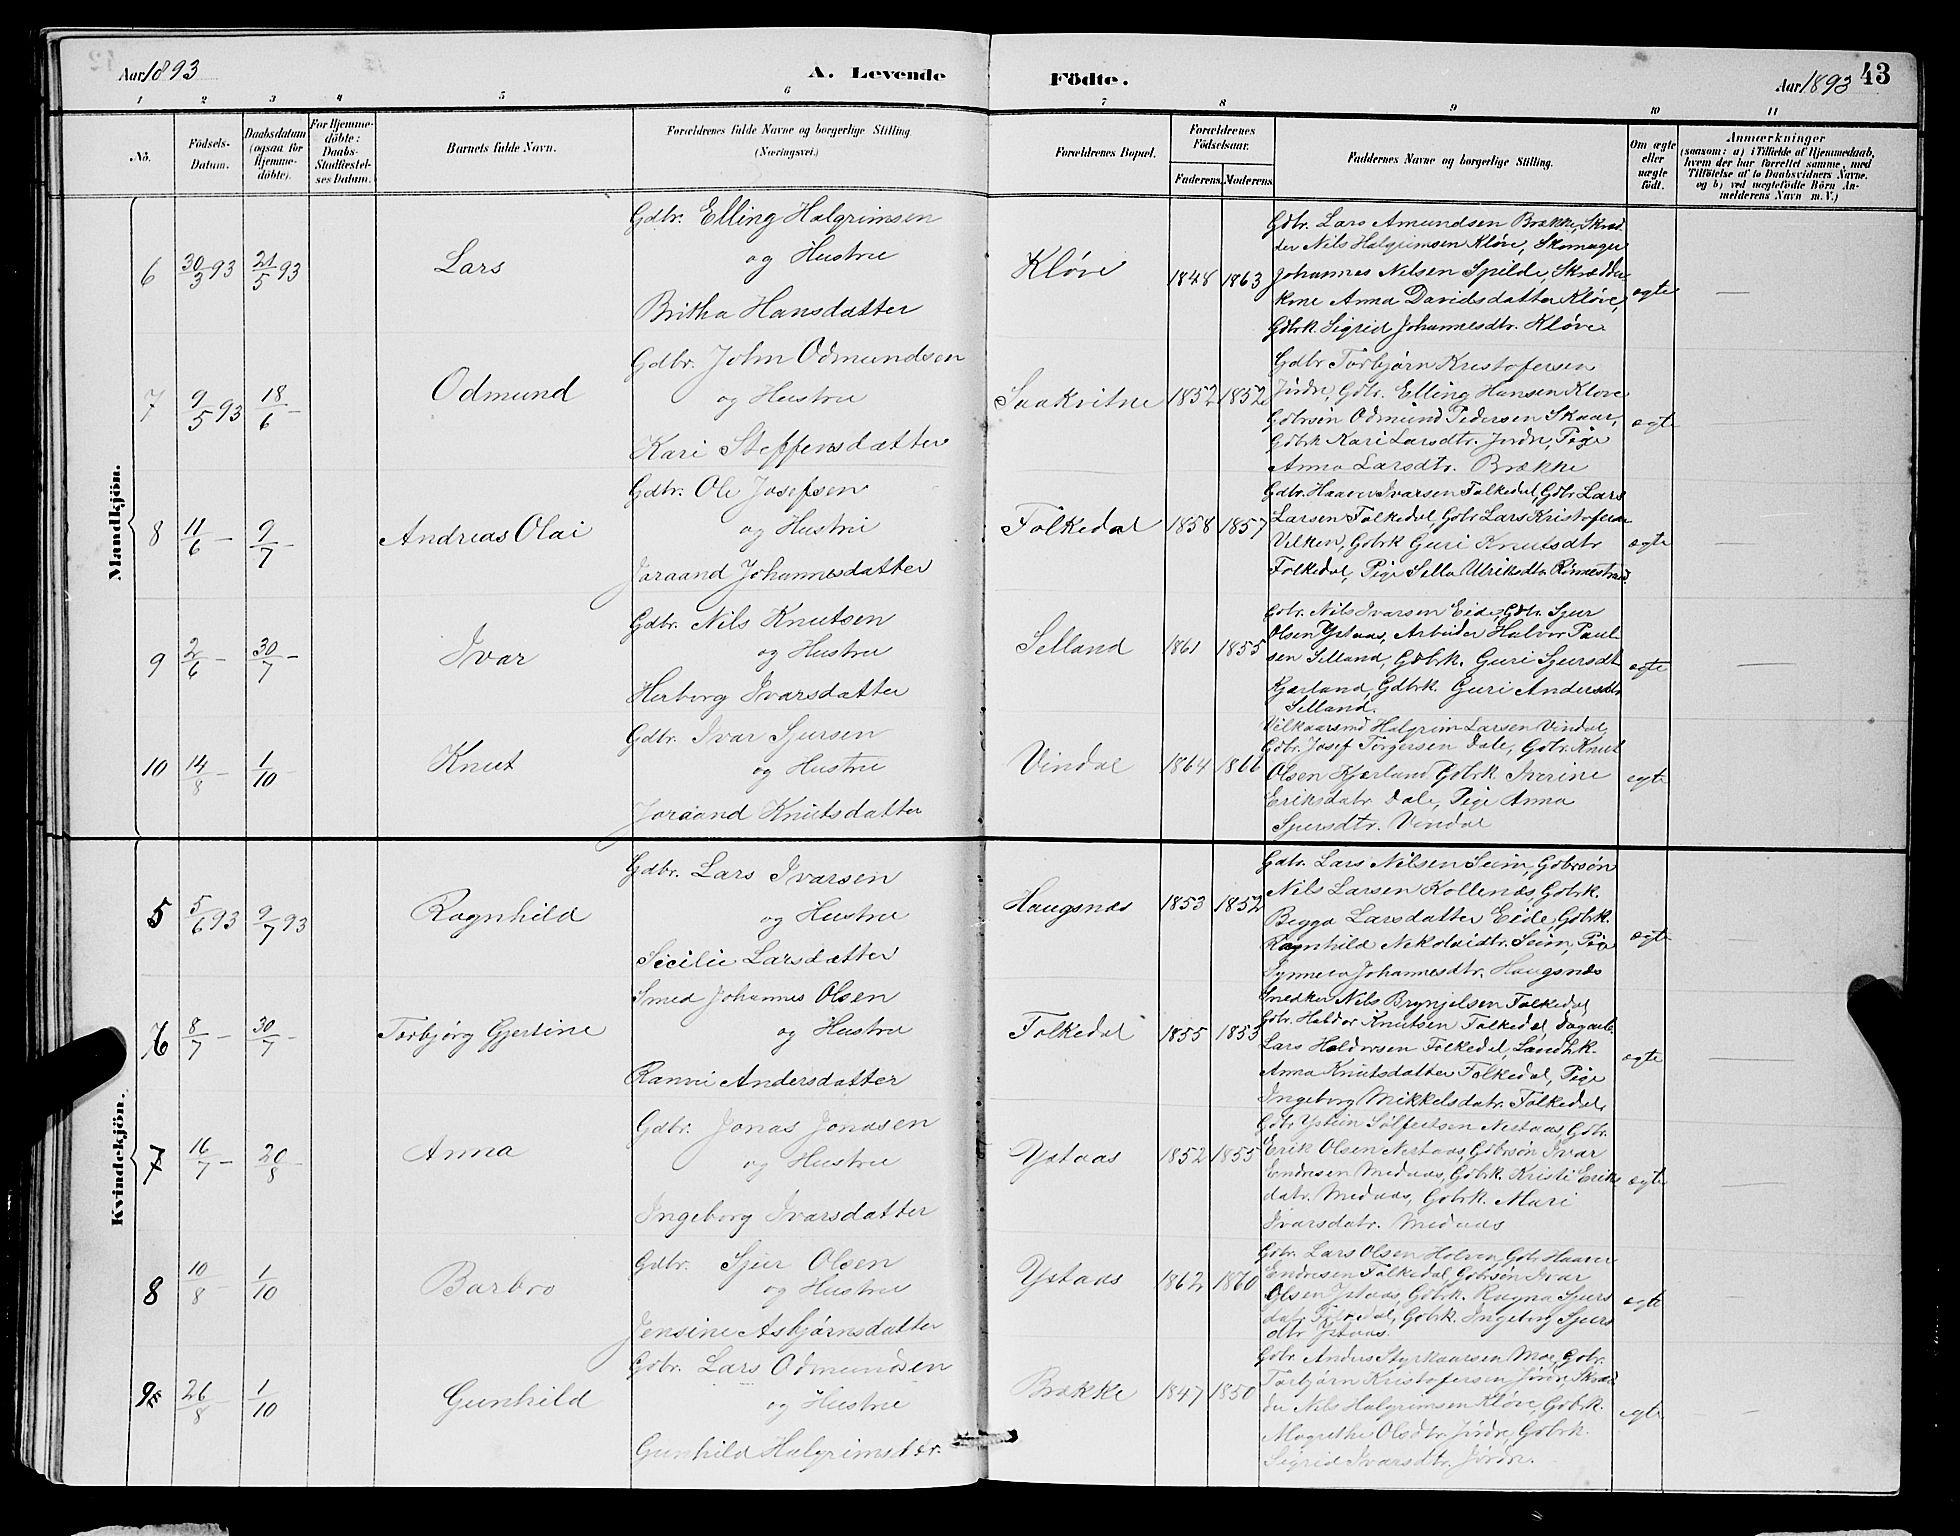 Aar 1893
A. Levende Födte.
Aar 1893
43
1 2 3 4 5 6 7 8 9 10 11
No.
Födsels-
Datum.
Daabsdatum
(ogsaa for
Hjemme-
döbte).
For Hjemme-
döbte:
Daabs-
Stadfæstel-
ses Datum.
Barnets fulde Navn.
Forældrenes fulde Navne og borgerlige Stilling.
(Næringsvei.)
Forældrenes Bopæl.
Forældrenes
Födselsaar.
Faderens. Moderens.
Faddernes Navne og borgerlige Stilling.
Om ægte
eller
uægte
födt.
Anmærkninger
(saasom: a) i Tilfælde af Hjemmedaab,
hvem der har forrettet samme, med
Tilföielse af to Daabsvidners Navne.
og b) ved uægtefödte Börn An-
melderens Navn m. V.)
Mandkjön.
6
30/3 93
21/5 93
Lars
Gdbr. Elling Halgrimsen
og Hustru
Britha Hansdatter
Kløve
1848 1863
Gdbr. Lars Amundsen Brække, Skræd
der Nils Halgrimsen Kløve, Skomager
Johannes Nilsen Spilde, Skrædder
kone Anna Davidsdatter Kløve,
Gdbrk. Sigrid Johannesdtr. Kløve
ægte
7
9/5 93
18/6 –
Odmund
Gdbr. John Odmundsen
og Hustru
Kari Steffensdatter
Saakvitne
1852 1852
Gdbr Torbjørn Kristofersen
Jørdre, Gdbr. Elling Hansen Kløve
Gdbrsøn Odmund Pedersen Skaar,
Gdbrk Kari Larsdtr. Jordr, Pige
Anna Larsdtr. Brække
ægte
8
11/6 –
9/7 –
Andreas Olai
Gdbr. Ole Josefsen
og Hustru
Joraand Johannesdatter
Folkedal
1858 1857
Gdbr. Haaver Ivarsen Folkedal, Gdbr Lars
Larsen Folkedal, Gdbr Lars Kristofersen
Vilken, Gdbrk Guri Knutsdtr
Folkedal, Pige Sella Ulriksdtr
ægte
9
2/6 –
30/7 –
Ivar
Gdbr. Nils Knutsen
og Hustru
Herborg Ivarsdatter
Selland
1861 1855
Gdbr. Nils Ivarsen Eide, Gdbr. Sjur
Olsen Ystaas, Arbeider Halvor Paul
sen Selland, Gdbrk. Guri Sjursdt
Kjærland, Gdbrk. Guri Andersdtr
Selland.
ægte
10
14/8 –
1/10 –
Knut
Gdbr. Ivar Sjursen
og Hustru
Joraand Knutsdatter
Vindal
1864 1866
Vilkaarsmd Halgrim Larsen Vindal,
Gdbr. Josef Torgersen Dale, Gdbr. Knut
Olsen Kjærland, Gdbrk Iverine
Eriksdatr. Dale, Pige Anna
Sjursdtr. Vindal
ægte
Kvindekjön.
5
5/6 93
9/7 93
Ragnhild
Gdbr. Lars Ivarsen
og Hustru
Secilie Larsdatter
Haugsnæs
1853 1852
Gdbr. Lars Nilsen Seim, Gdbrsøn
Nils Larsen Kollenæs, Gdbrk.
Begga Larsdatter Eide, Gdbrk.
Ragnhild Nikolaidtr. Seim, Pige
Synneva Johannesdtr. Haugsnæs
ægte
6
8/7 –
30/7 –
Torbjørg Gjertine
Smed Johannes Olsen
og Hustru
Ranvei Andersdatter
Folkedal
1855 1853
Snedker Nils Brynjelsen Folkedal,
Gdbr. Haldor Knutsen Folkedal, Dagarb.
Lars Haldorsen Folkedal,
Anna Knutsdatter Folkedal, Pige
Ingeborg Mikkelsdatr. Folkedal.
ægte
7
16/7 –
20/8
Anna
Gdbr. Jonas Jonasen
og Hustru
Ingeborg Ivarsdatter
Ystaas
1852 1855
Gdbr Ystein Sølfestsen Nestaas, Gdbr.
Erik Olsen Nestaas, Gdbrsøn Ivar
Endresen Medaas, Gdbrk. Kristi Eriks
datr. Medaas, Gdbrk. Mari
Ivarsdatr. Medaas
ægte
8
10/8
1/10
Barbro
Gdbr. Sjur Olsen
og Hustru
Jensine Asbjørnsdatter
Ystaas
1862 1870
Gdbr. Lars Olsen Holven, Gdbr Haaver
Endresen Folkedal, Gdbrsøn Ivar
Olsen Ystaas, Gdbrk. Ragna Sjurs
datr. Folkedal, Gdbrk. Ingeborg Sjurs
dtr Ystaas.
ægte
9
26/8
1/10
Gunhild
Gdbr. Lars Odmundsen
og Hustru
Gunhild Halgrimsdtr.
Brække
1847 1850
Gdbr. Anders Styrkaarsen Moe, Gdbr.
Torbjørn Kristofersen Jørdre, Skræd
der Nils Halgrimsen Kløve, Gdbrk.
Magrethe Olsdtr. Jørdre, Gdbrk.
Sigrid Ivarsdtr. Jørdre.
ægte